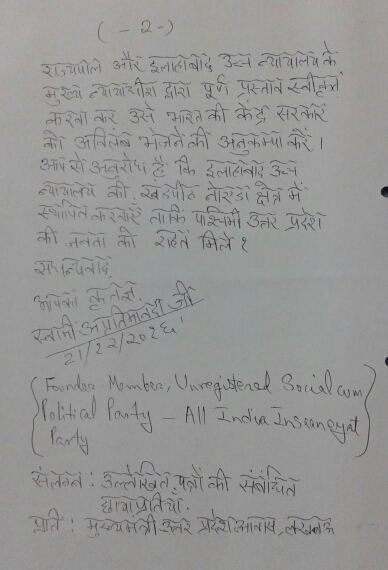 ( - 2 - )
राज्यपाल और इलाहाबाद उच्च न्यायालय के
मुख्य न्यायाधीश द्वारा पूर्ण प्रस्ताव स्वीकृत
करवा कर उसे भारत की केंद्र सरकार
को अविलंब भेजने की अनुकम्पा करें ।
आप से अनुरोध है कि इलाहाबाद उच्च
न्यायालय की खंडपीठ नोएडा क्षेत्र में
स्थापित करवाएं ताकि पश्चिमी उत्तर प्रदेश
की जनता को राहत मिले ।
सधन्यवाद,
आपका कृतज्ञ,
स्वामी अप्रतिमानंदा जी
21/12/2016
(Founder-Member, Unregistered Social cum
Political Party – All India Insaneyat
Party)
संलग्न : उल्लेखित पत्रों की संबंधित
छायाप्रतियां.
प्रति : मुख्यमंत्री उत्तर प्रदेश आवास, लखनऊ